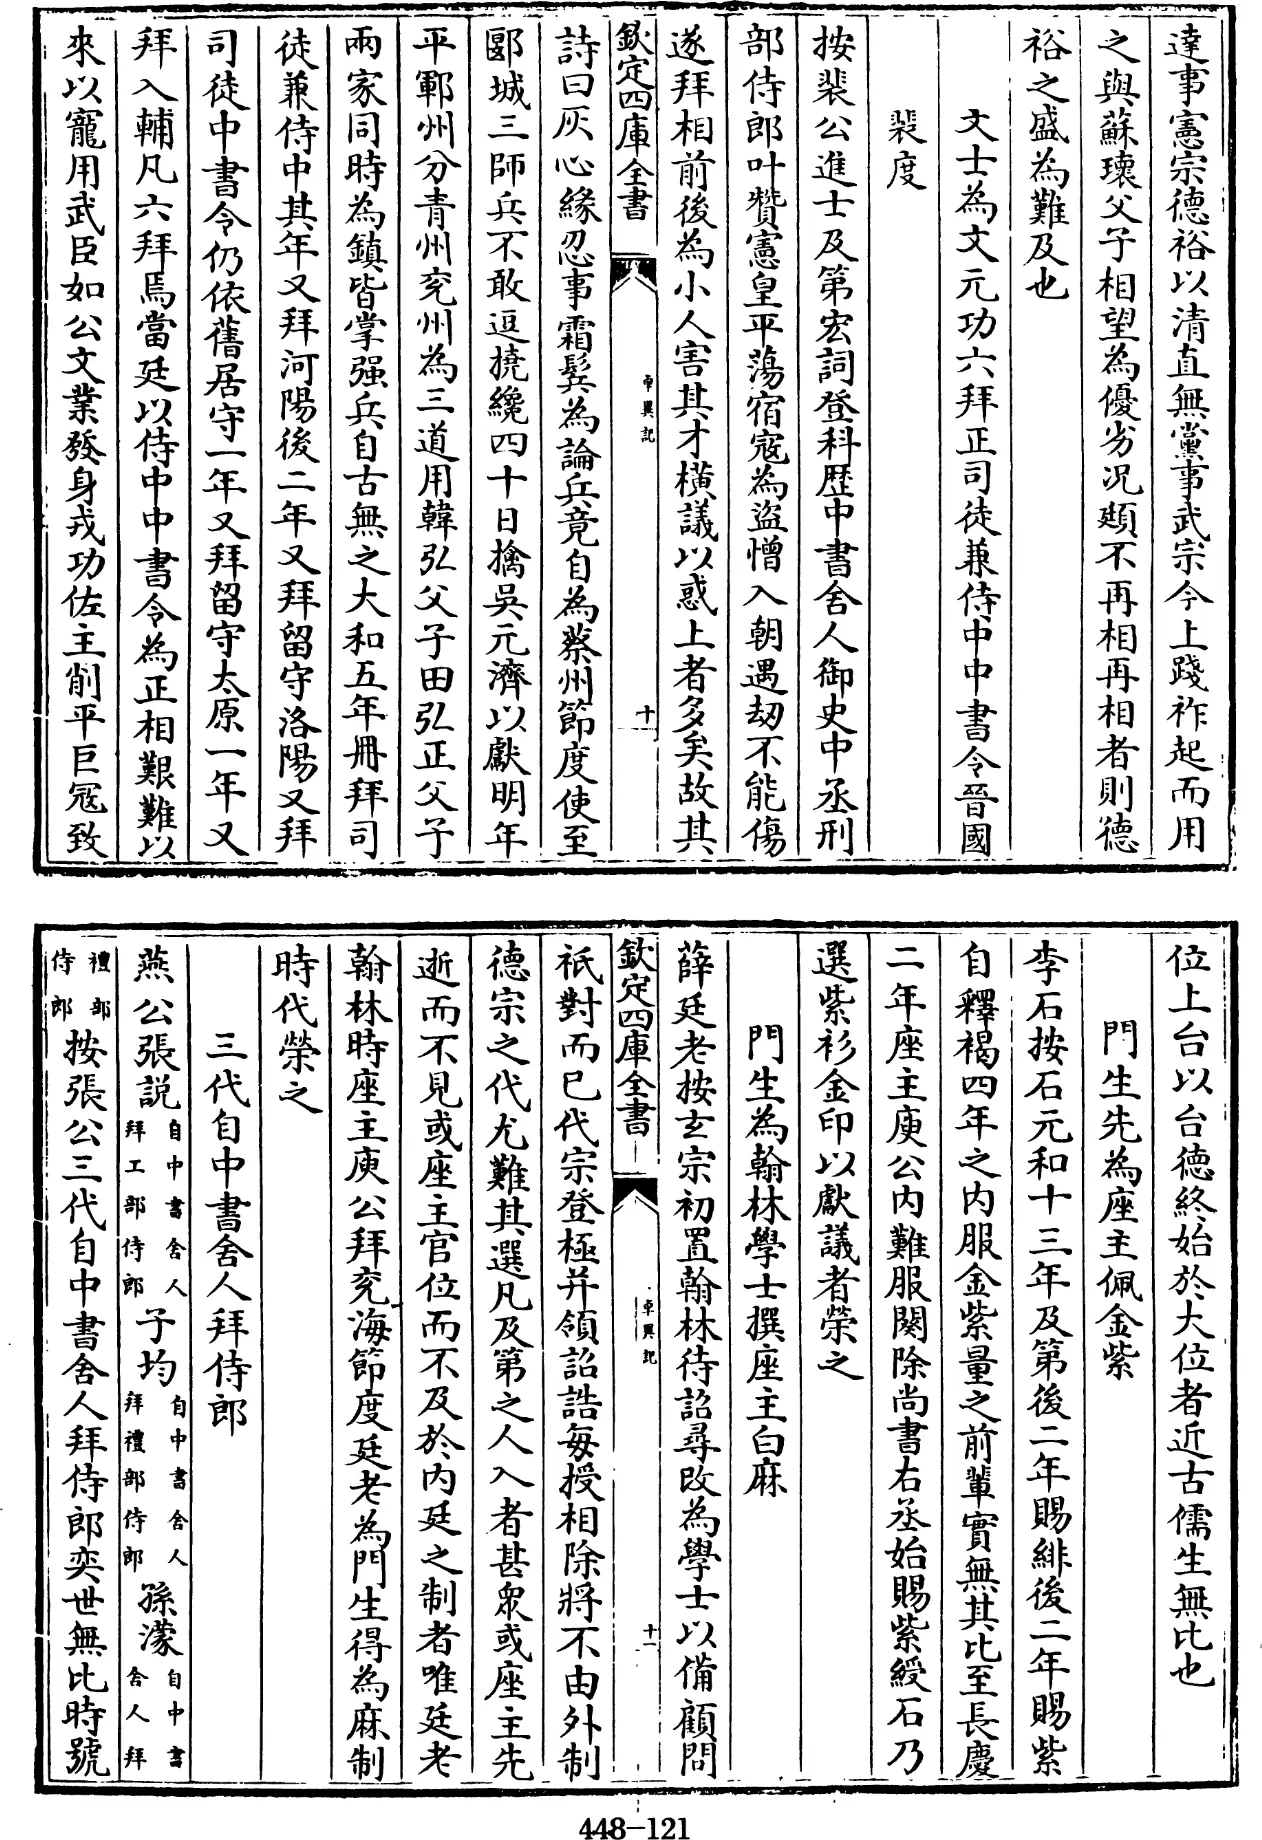 達事憲宗德裕以清直無黨事武宗今上踐祚起而用
之與蘇瓌父子相望為優劣況頲不再相再相者則德
裕之盛為難及也
文士為文元功六拜正司徒兼侍中中書令晉國
裴度
按裴公進士及第宏詞登科歷中書舍人御史中丞刑
部侍郎叶贊憲皇平蕩宿寇為盜憎入朝遇刼不能傷
遂拜相前後為小人害其才橫議以惑上者多矣故其
欽定四庫全書
卓異記
十
詩曰灰心緣忍事霜鬂為論兵竟自為蔡州節度使至
郾城三師兵不敢逗撓纔四十日擒吳元濟以獻明年
平鄆州分青州兖州為三道用韓弘父子田弘正父子
兩家同時為鎮皆掌强兵自古無之大和五年冊拜司
徒兼侍中其年又拜河陽後二年又拜留守洛陽又拜
司徒中書令仍依舊居守一年又拜留守太原一年又
拜入輔凡六拜焉當廷以侍中中書令為正相艱難以
來以寵用武臣如公文業發身戎功佐主削平巨寇致
位上台以台德終始於大位者近古儒生無比也
門生先為座主佩金紫
李石按石元和十三年及第後二年賜緋後二年賜紫
自釋褐四年之内服金紫量之前輩實無其比至長慶
二年座主庾公内難服闋除尚書右丞始賜紫綬石乃
選紫衫金印以獻議者榮之
門生為翰林學士撰座主白麻
薛廷老按玄宗初置翰林待詔尋改為學士以備顧問
欽定四庫全書
卓異記
十一
祇對而已代宗登極并領詔誥每授相除將不由外制
德宗之代尤難其選凡及第之人入者甚衆或座主先
逝而不見或座主官位而不及於内廷之制者唯廷老
翰林時座主庾公拜兖海節度廷老為門生得為麻制
時代榮之
三代自中書舍人拜侍郎
燕公張説自中書舍人拜工部侍郎子均自中書舍人拜禮部侍郎孫濛自中書舍人拜
禮部侍郎按張公三代自中書舍人拜侍郎奕世無比時號
448-121